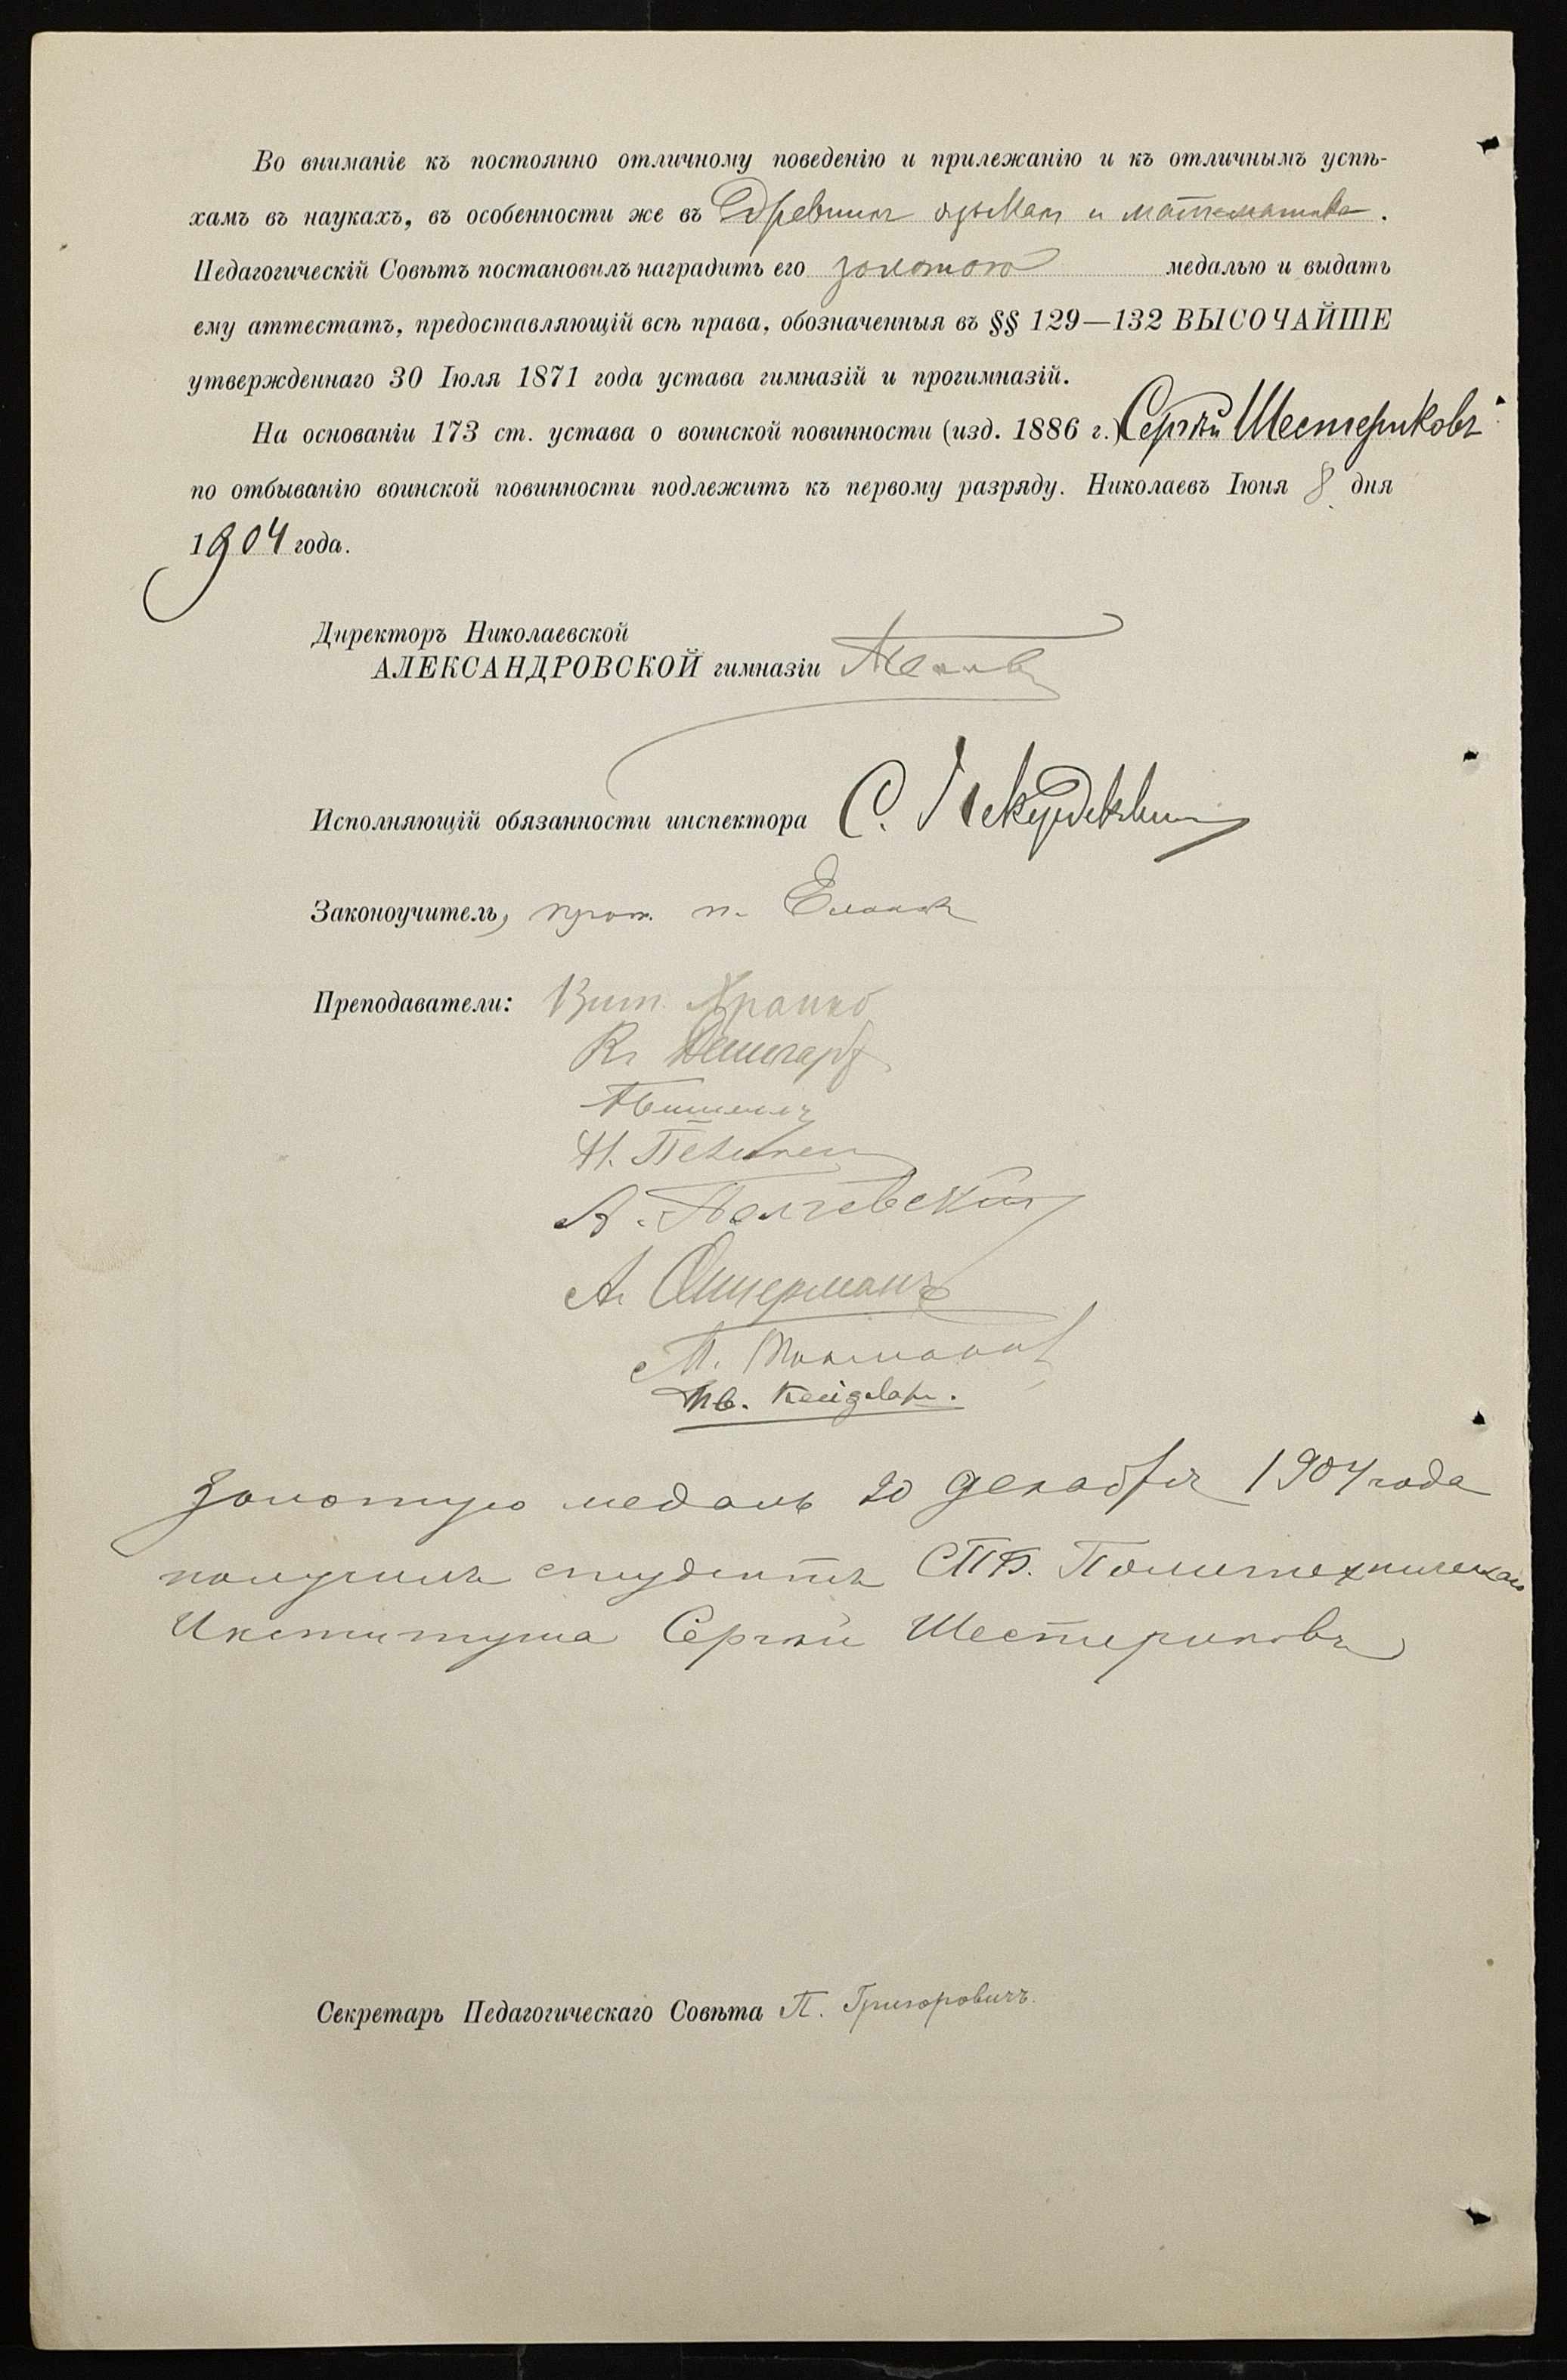 Во вниманіе къ постоянно отличному поведенію и прилежанію и къ отличнымъ успѣ-
хамъ въ наукахъ, въ особенности же въ древнихъ языкахъ и математикѣ.
Педагогическій Совѣтъ постановилъ наградить его золотою медалью и выдать
ему аттестатъ, предоставляющій всѣ права, обозначенныя въ §§ 129—132 ВЫСОЧАЙШЕ
утвержденнаго 30 Іюля 1871 года устава гимназій и прогимназій.
На основаніи 173 ст. устава о воинской повинности (изд. 1886 г.) Сергѣй Шестериковъ
по отбыванію воинской повинности подлежитъ къ первому разряду. Николаевъ Іюня 8 дня
1904 года.
Директоръ Николаевской
АЛЕКСАНДРОВСКОЙ гимназіи
Исполняющій обязанности инспектора С.
Законоучитель, прот.
Преподаватели:
Н.
А.
А.
М.
Ив.
Золотую медаль 20 декабря 1904 года
получилъ студентъ СПБ. Политехническаго
Института Сергѣй Шестериковъ
Секретарь Педагогическаго Совѣта П. Григоровичъ.